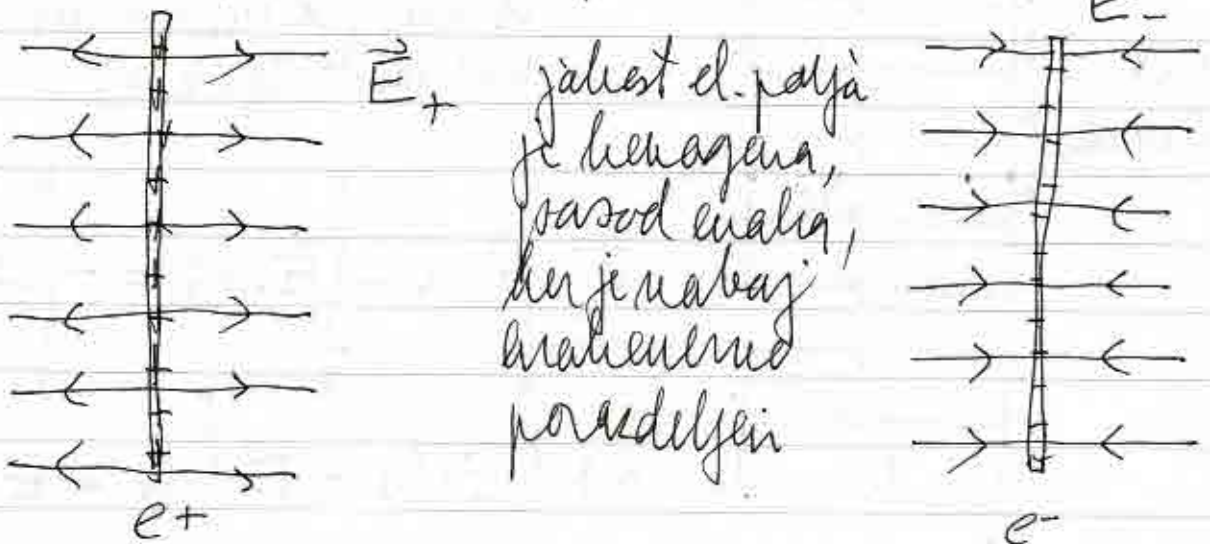 E₋
E⃗₊
jakost el. polja
je homogena,
povsod enaka,
ker je naboj
enakomerno
porazdeljen
e+
e-